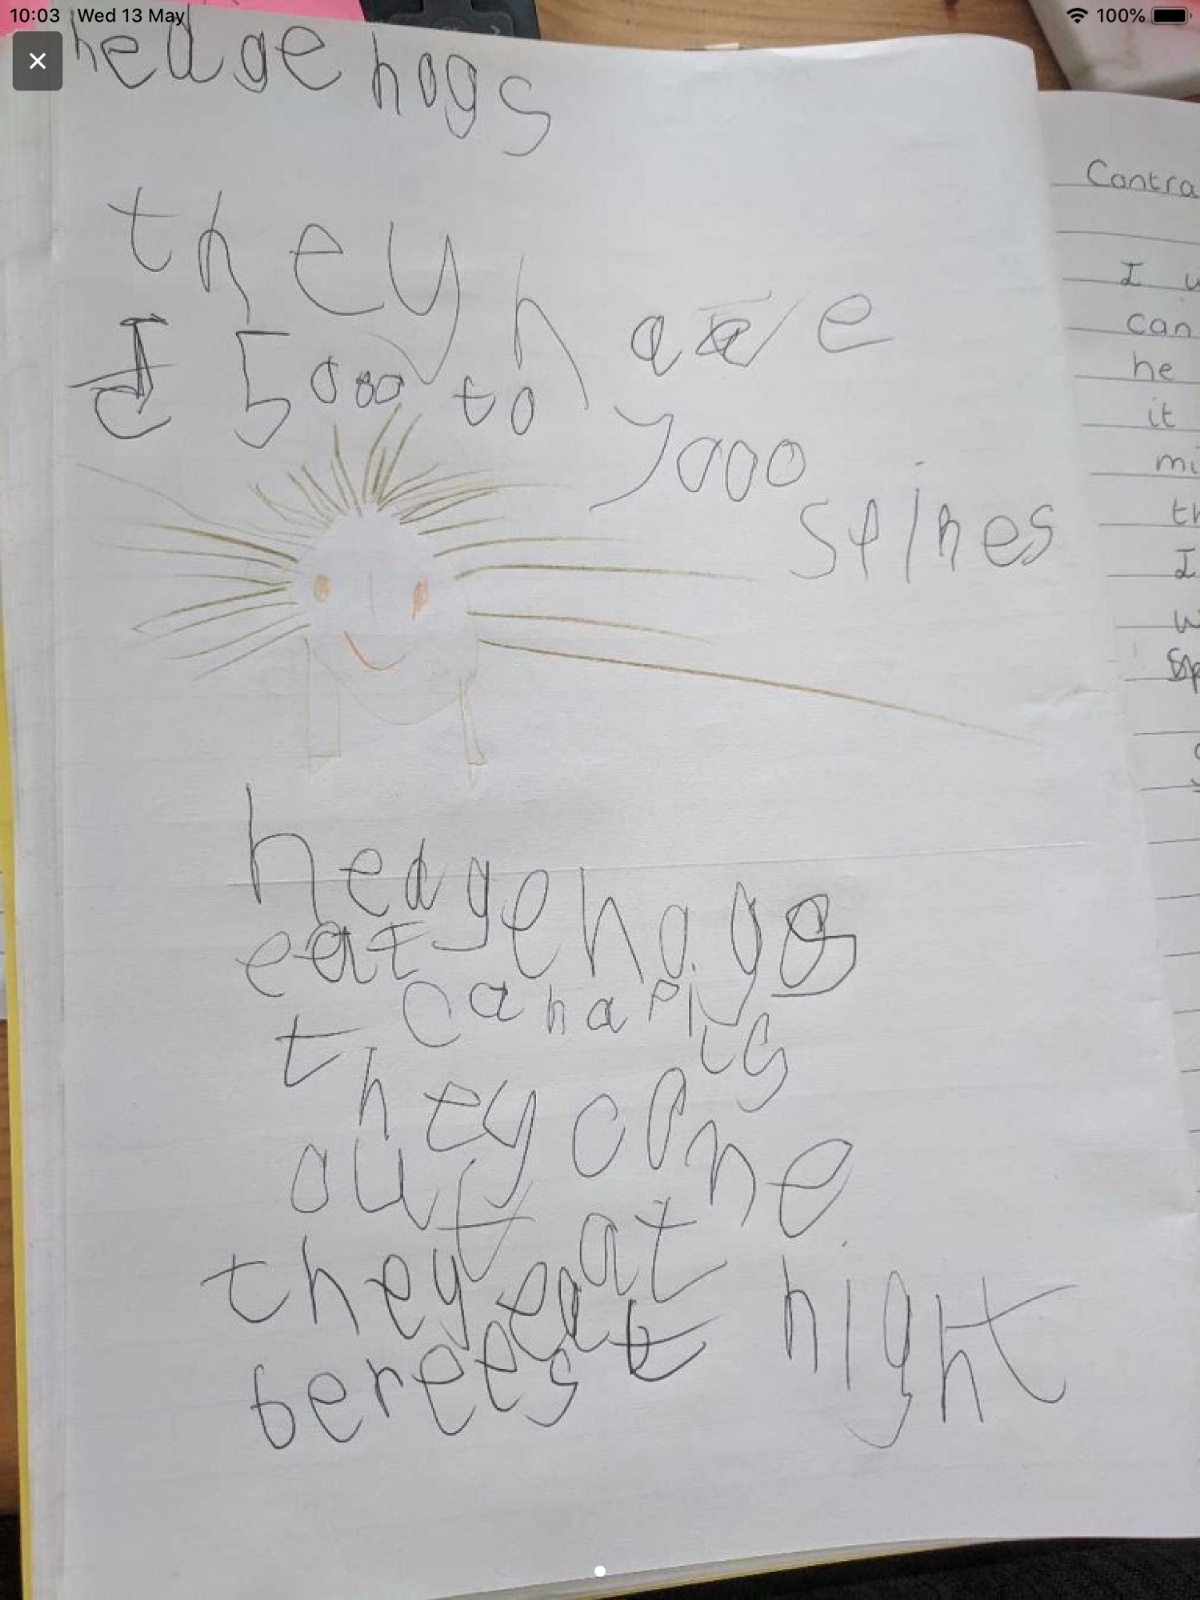 10:03 Wed 13 May
100%
hedge hogs
they have
5000 to
7000
spines
hedgehogs
eat
canapils
they come
out at night
they eat
berees
Contra
I w
can
he
it
mi
th
I
w
Sp